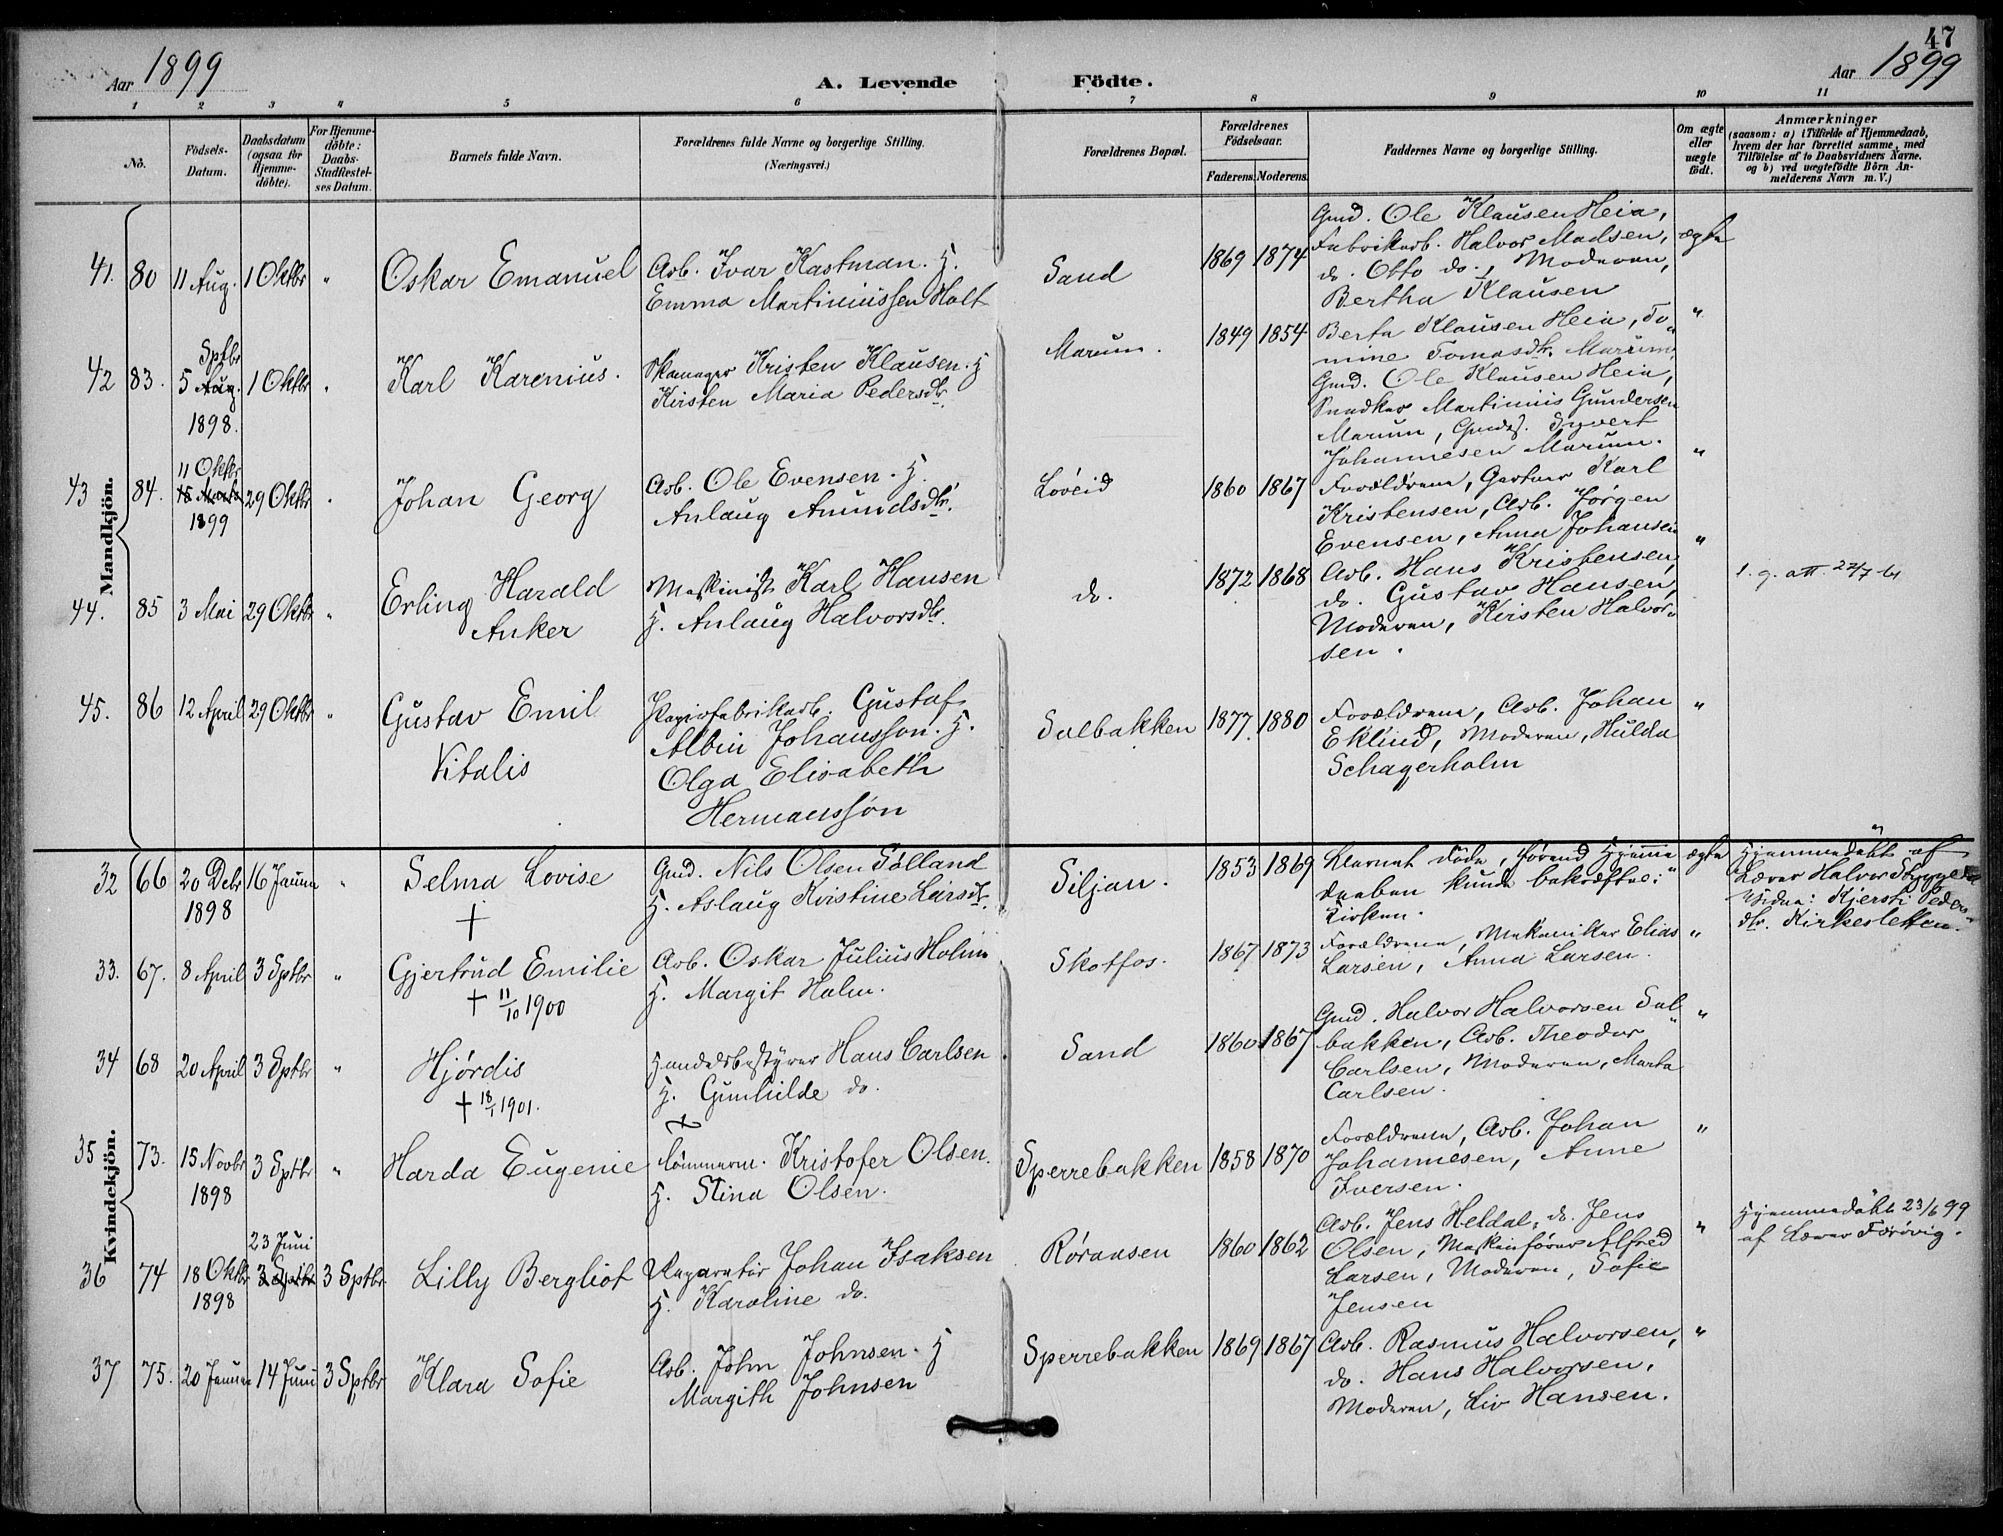 47
Aar 1899
A. Levende Födte.
Aar 1899
1 2 3 4 5 6 7 8 9 10 11
No.
Födsels-
Datum.
Daabsdatum
(ogsaa for
Hjemme-
döbte).
For Hjemme-
döbte:
Daabs-
Stadfæstel-
ses Datum.
Barnets fulde Navn.
Forældrenes fulde Navne og borgerlige Stilling.
(Næringsvei.)
Forældrenes Bopæl.
Forældrenes
Födselsaar.
Faderens. Moderens.
Faddernes Navne og borgerlige Stilling.
Om ægte
eller
uægte
födt.
Anmærkninger
(saasom: a) i Tilfælde af Hjemmedaab,
hvem der har forrettet samme, med
Tilföielse af to Daabsvidners Navne.
og b) ved uægtefödte Börn An-
melderens Navn m. V.)
Mandkjön.
41. 80 11 Aug. 1 Oktbr "
Oskar Emanuel
Arb. Ivar Kastman. H.
Emma Martiniussen Holt
Sand
1869 1874
Gmd. Ole Klausen Heia,
Fabrikarb. Halvor Madsen,
do. Otto do., Moderen,
Bertha Klausen
ægte
42 83. Sptbr
5 Aug. 1 Oktbr "
1898.
Karl Karenius.
Skomager Kristen Klausen. H
Kirsten Maria Pedersdtr.
Marum.
1849 1854
Berta Klausen Heia, To-
mine Tomasdtr. Marum,
Gmd. Ole Klausen Heia,
Snedker Martinius Gundersen
Marum, Gmds. Syvert
Johannesen Marum.
"
43 84. 11 Oktbr
29 Oktbr "
1899
Johan Georg
Arb. Ole Evensen. H.
Anlaug Amundsdtr.
Løveid
1860 1867
Forældrene, Gartner Karl
Kristensen, Arb. Jørgen
Evensen, Anna Johansen
"
44. 85 3 Mai 29 Oktbr "
Erling Harald
Anker
Maskinist Karl Hansen
H. Anlaug Halvorsdtr.
do.
1872 1868
Arb. Hans Kristensen,
do. Gustav Hansen,
Moderen, Kirsten Halvor-
sen.
"
45. 86 12 April 29 Oktbr "
Gustav Emil
Vitalis
Papirfabrikarb. Gustaf
Albin Johansson. H.
Olga Elisabeth
Hermansson
Solbakken
1877 1880
Forældrene, Arb. Johan
Eklind, Moderen, Hulda
Schagerholm
"
Kvindekjön.
32 66 20 Debr 16 Januar "
1898
Selma Lovise
†
Gmd. Nils Olsen Tølland
H. Aslaug Kristine Larsdtr.
Siljan.
1853 1869
Barnet døde, førend Hjemme
daaben kunde bekræftes i
Kirken.
ægte
Hjemmedøbt af
Lærer Halvor
Vidne: Kjersti Peders-
dtr. Kirkesletten.
33. 67. 8 April 3 Sptbr "
Gjertrud Emilie
† 11/10 1900
Arb. Oskar Julius Holm
H. Margit Holm.
Skotfos.
1867 1873
Forældrene, Mekaniker Elias
Larsen, Anna Larsen.
"
34 68 20 April 3 Sptbr "
Hjørdis
† 18/1 1901.
Handelsbestyrer Hans Carlsen
H. Gunhilde do.
Sand
1860 1867
Gmd. Halvor Halvorsen Sol-
bakken, Arb. Theodor
Carlsen, Moderen, Marta
Carlsen.
"
35 73. 15 Novbr 3 Sptbr "
1898
Harda Eugenie
Tømmerm. Kristofer Olsen.
H. Stina Olsen.
Sperrebakken
1858 1870
Forældrene, Arb. Johan
Johannesen, Anne
Iversen.
"
36 74 18 Oktbr
1898
23 Juni
3 Sptbr 3 Sptbr
Lilly Bergliot
Reparatør Johan Isaksen
H. Karoline do.
Røraasen
1860 1862
Arb. Jens Heldal, do. Jens
Olsen, Maskinfører Alfred
Larsen, Moderen, Sofie
Jensen
"
Hjemmedøbt 23/6 99
af Lærer Førövig.
37 75. 20 Januar 14 Juni 3 Sptbr
Klara Sofie
Arb. John Johnsen. H
Margith Johnsen
Sperrebakken
1869 1867
Arb. Rasmus Halvorsen,
do. Hans Halvorsen,
Moderen, Liv Hansen.
"